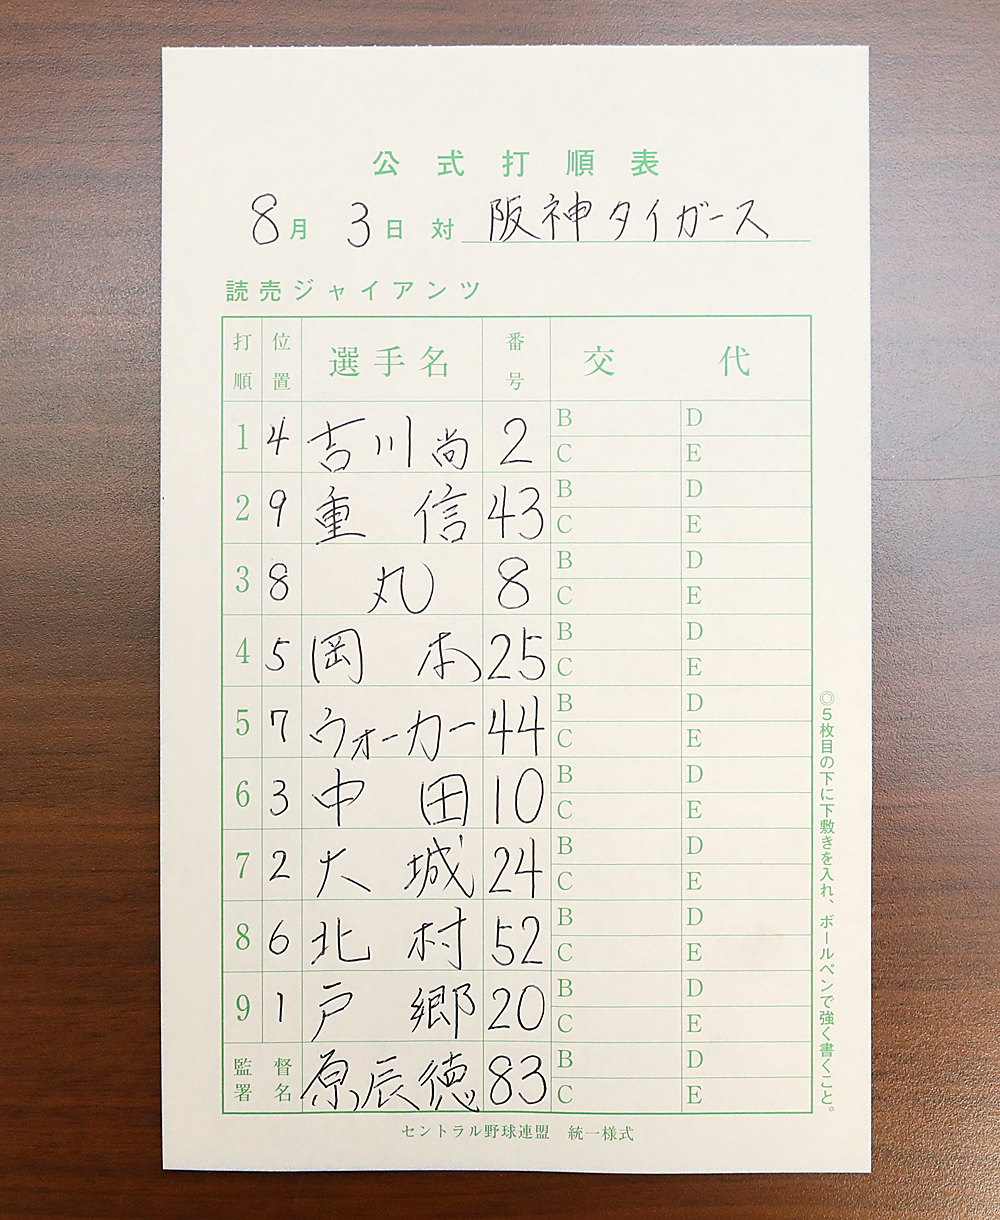 公式打順表
8月 3日 対 阪神タイガース
読売ジャイアンツ
打順 位置 選手名 番号 交代
1 4 吉川尚 2 B D
C E
2 9 重信 43 B D
C E
3 8 丸 8 B D
C E
4 5 岡本 25 B D
C E
5 7 ウォーカー 44 B D
C E
6 3 中田 10 B D
C E
7 2 大城 24 B D
C E
8 6 北村 52 B D
C E
9 1 戸郷 20 B D
C E
監督署名 原辰徳 83 B D
C E
セントラル野球連盟 統一様式
◎5枚目の下に下敷きを入れ、ボールペンで強く書くこと。